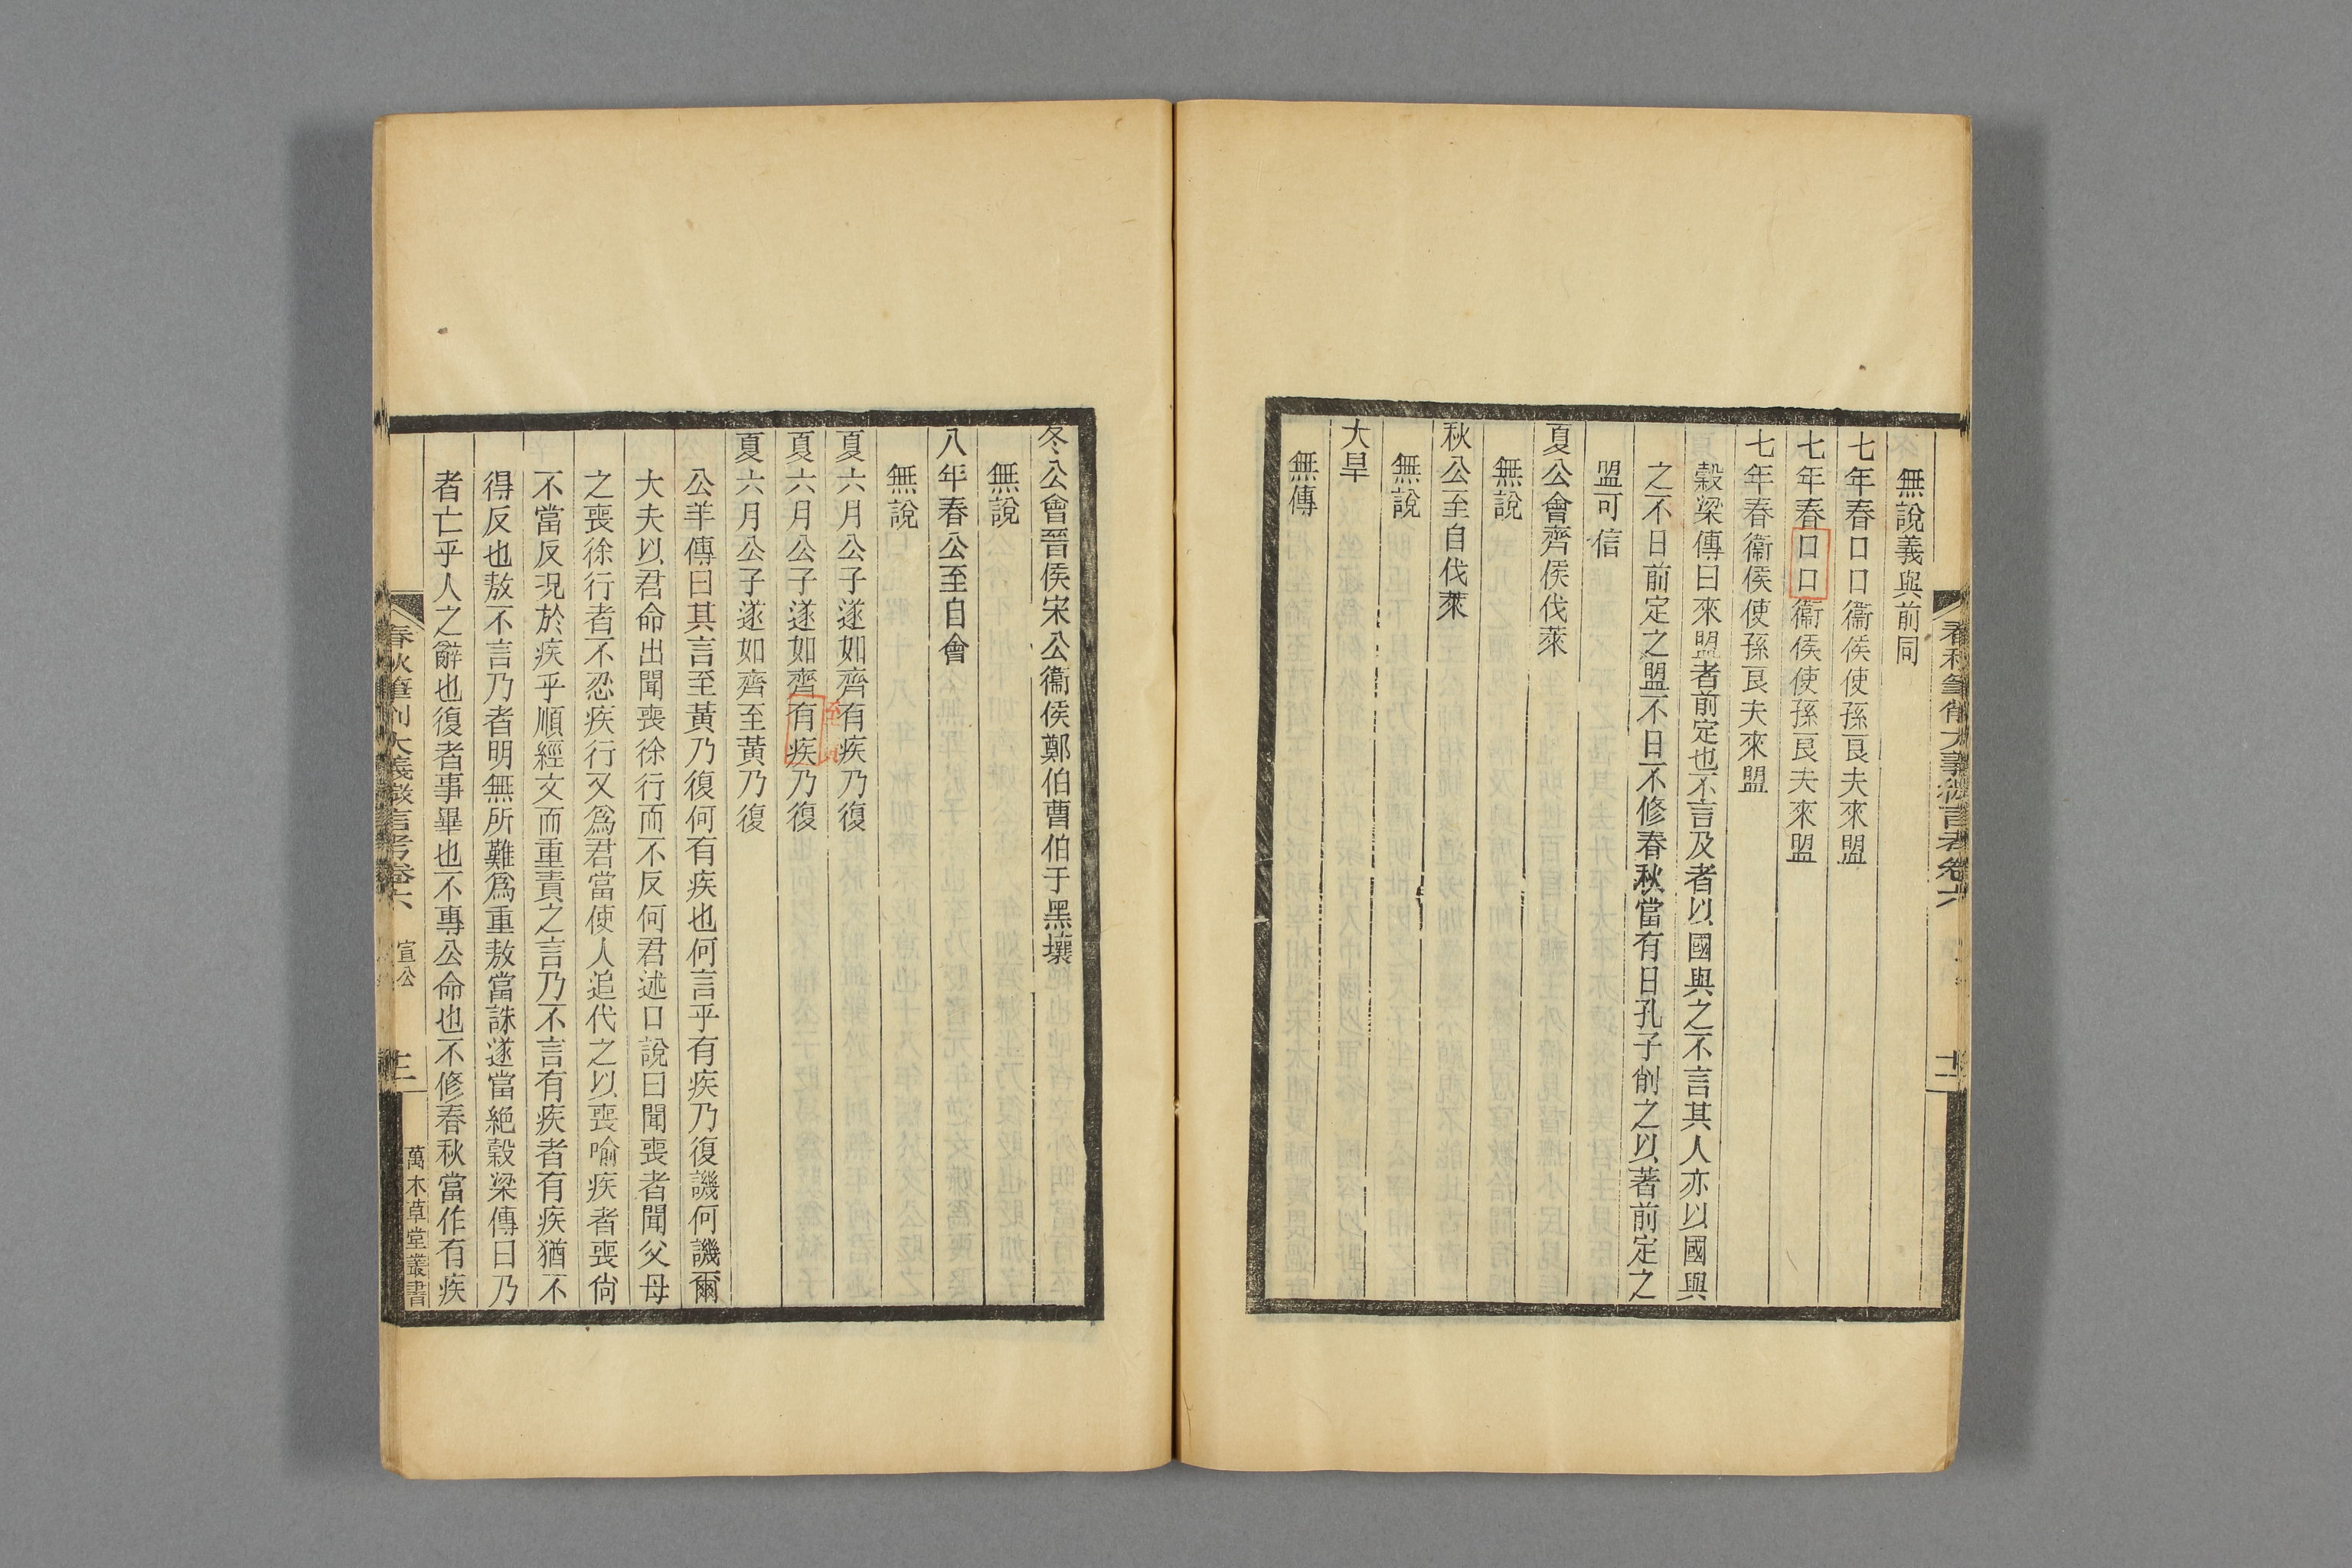 無說義與前同
七年春口口衞侯使孫良夫來盟
七年春口口衞侯使孫良夫來盟
七年春衞侯使孫良夫來盟
穀梁傳曰來盟者前定也不言及者以國與之不言其人亦以國與
之不日前定之盟不日不修春秋當有日孔子削之以著前定之
盟可信
夏公會齊侯伐萊
無說
秋公至自伐萊
無說
大旱
無傳
冬公會晉侯宋公衞侯鄭伯曹伯于黑壤
無說
八年春公至自會
無說
夏六月公子遂如齊有疾乃復
夏六月公子遂如齊有疾乃復
夏六月公子遂如齊至黃乃復
公羊傳曰其言至黃乃復何有疾也何言乎有疾乃復譏何譏爾
大夫以君命出聞喪徐行而不反何君述口說曰聞喪者聞父母
之喪徐行者不忍疾行又爲君當使人追代之以喪喻疾者喪尙
不當反況於疾乎順經文而重責之言乃不言有疾者有疾猶不
得反也敖不言乃者明無所難爲重敖當誅遂當絕穀梁傳曰乃
者亡乎人之辭也復者事畢也不專公命也不修春秋當作有疾
春秋筆削大義微言考卷六
宣公
十二
萬木草堂叢書